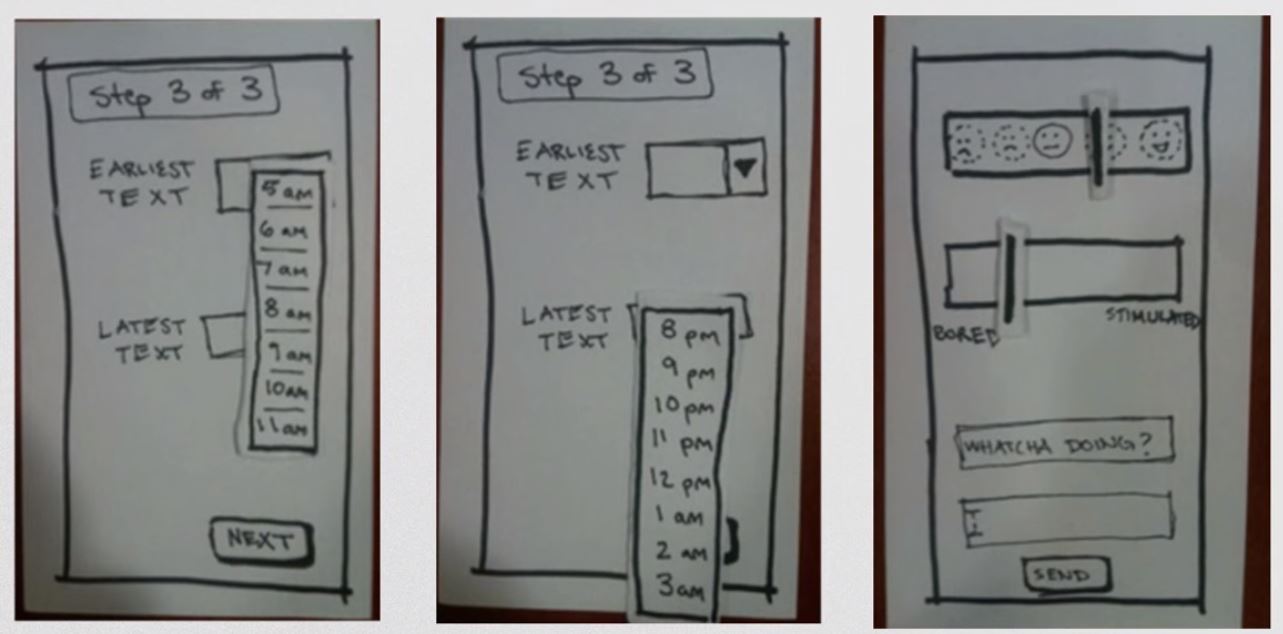 Step 3 of 3
EARLIEST
TEXT
5 am
6 am
7 am
8 am
9 am
10 am
11 am
LATEST
TEXT
NEXT
Step 3 of 3
EARLIEST
TEXT
LATEST
TEXT
8 pm
9 pm
10 pm
11 pm
12 pm
1 am
2 am
3 am
BORED
STIMULATED
WHATCHA DOING?
SEND